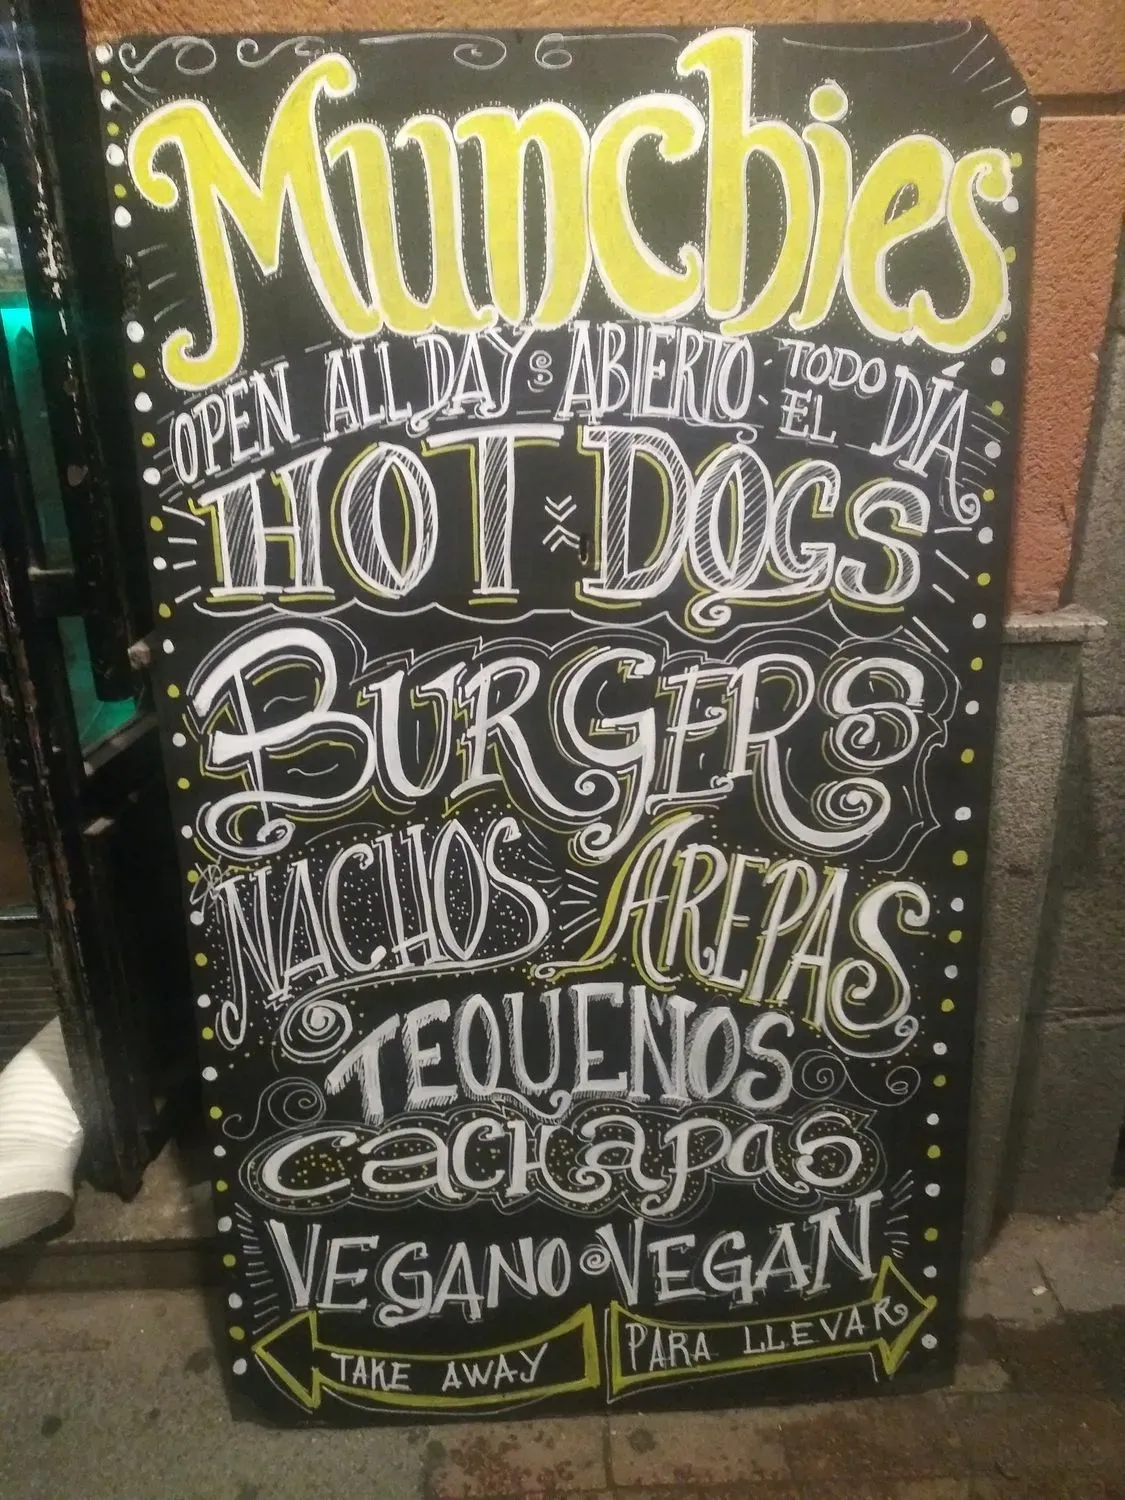 Munchies
OPEN ALL DAY ABIERTO TODO EL DÍA
HOT DOGS
BURGERS
NACHOS AREPAS
TEQUEÑOS
cacHapas
VEGANO VEGAN
TAKE AWAY PARA LLEVAR